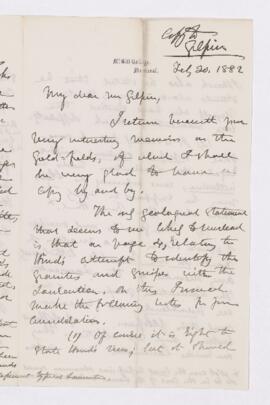 Copy to
Gilpin
McGill College,
Montreal.
Feb 20, 1882
My dear Mr Gilpin,
I return herewith your
very interesting memoirs on the
Gold-fields, of which I should
be very glad to have a
copy by and by.
The only geological statement
that seems to me likely to mislead
is that on page relating to
Hinds attempt to identify the
granites and gneiss with the
Laurentian. On this I would
make the following notes for your
consideration.
(1) Of course it is right to
state Hinds views; but it should